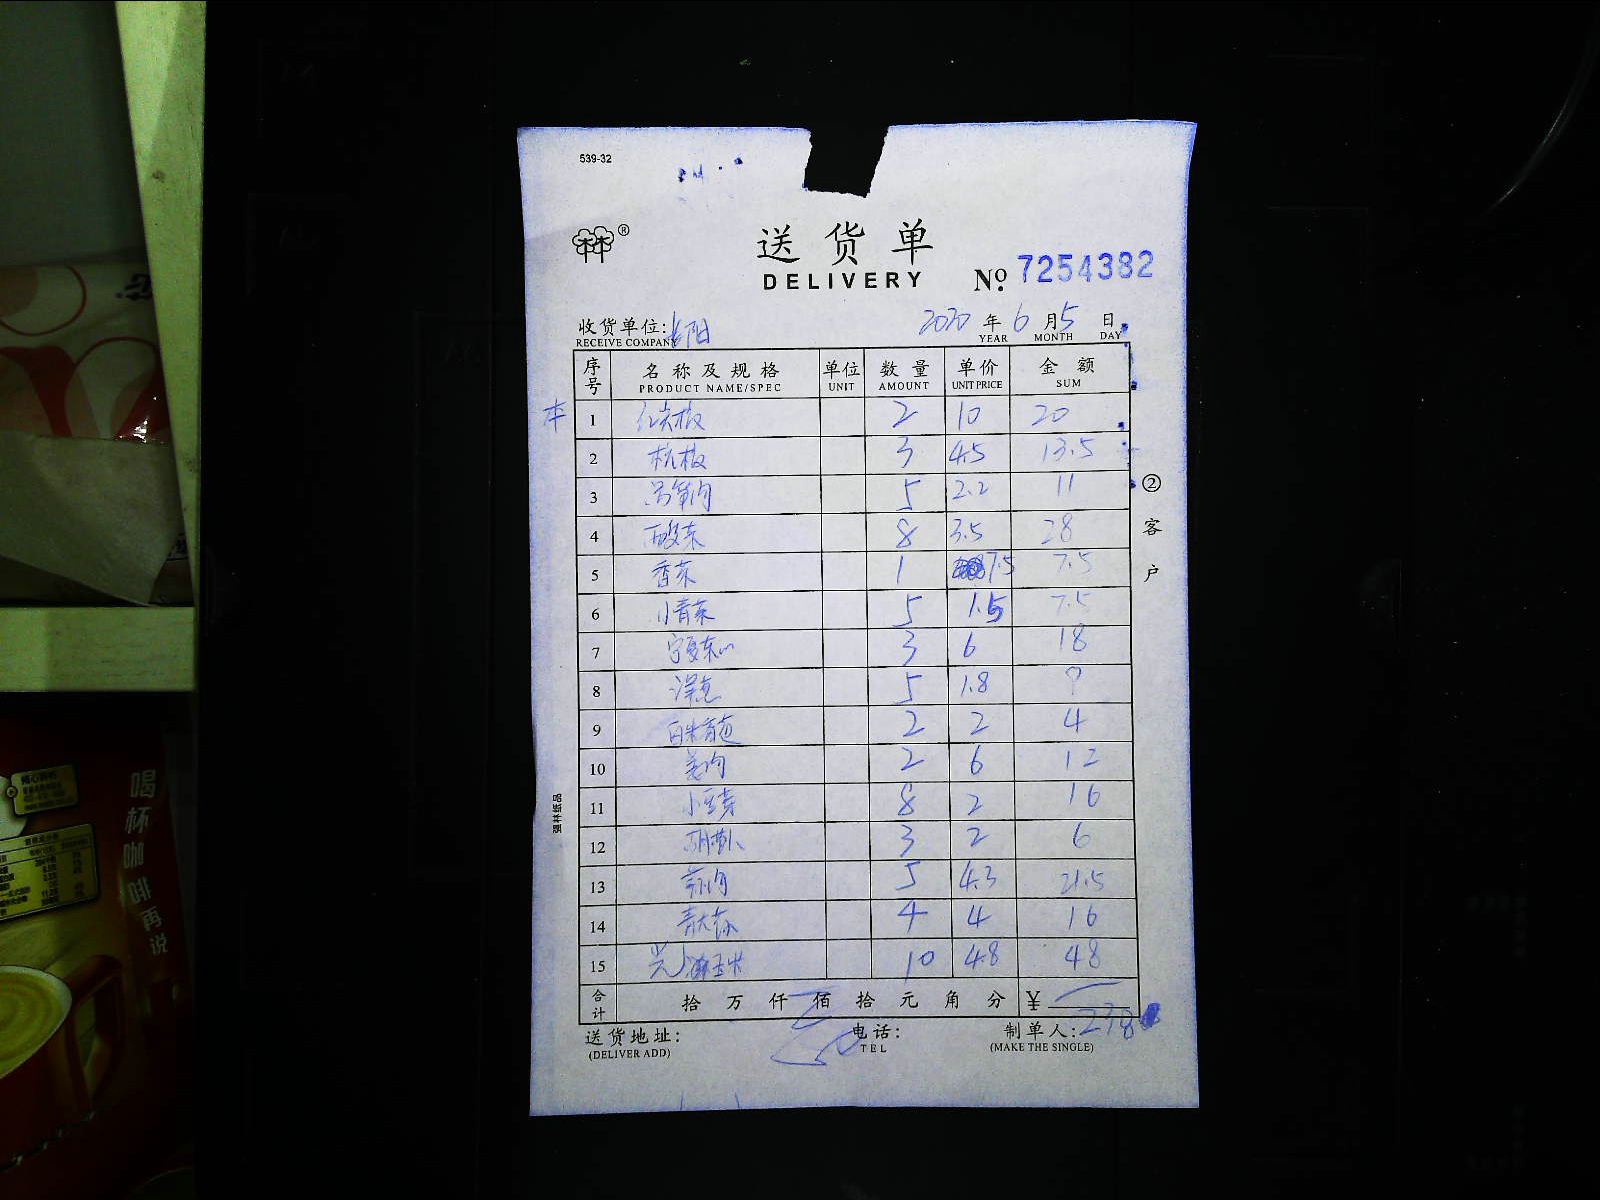 539-32
®
送货单
DELIVERY
No. 7254382
收货单位:
RECEIVE COMPANY
2020 年 6 月 5 日
YEAR MONTH DAY
序号 名称及规格 单位 数量 单价 金额
PRODUCT NAME/SPEC UNIT AMOUNT UNIT PRICE SUM
1 红尖椒 2 10 20
2 杭椒 3 4.5 13.5
3 5 2.2 11
4 酸菜 8 3.5 28
5 香菜 1 7.5 7.5
6 小青菜 5 1.5 7.5
7 宁夏菜心 3 6 18
8 5 1.8 9
9 2 2 4
10 姜肉 2 6 12
11 小豆芽 8 2 16
12 胡萝卜 3 2 6
13 5 4.3 21.5
14 青大蒜 4 4 16
15 10 4.8 48
合计 拾 万 仟 佰 拾 元 角 分 ¥
238
送货地址:
(DELIVER ADD)
电话:
TEL
制单人:
(MAKE THE SINGLE)
②客户
强林纸品
喝杯咖啡再说